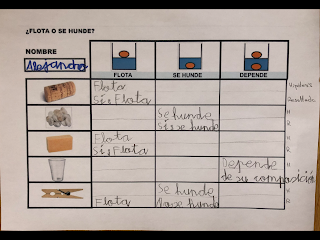 ¿FLOTA O SE HUNDE?
NOMBRE
Alejandro
FLOTA
SE HUNDE
DEPENDE
Hipótesis
Flota
Sí, Flota
Resultado
Se hunde
Sí se hunde
H
R
Flota
Sí, Flota
H
R
Depende
de su composición
H
R
Se hunde
H
Flota
No se hunde
R